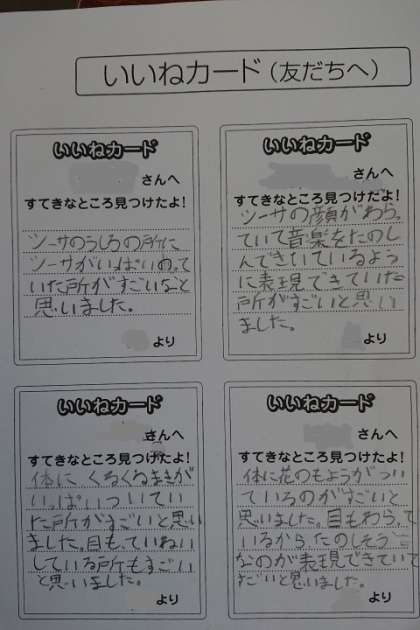 いいねカード（友だちへ）
いいねカード
さんへ
すてきなところ見つけたよ！
シーサのうしろの所に
シーサがいっぱいのって
いた所がすごいなと
思いました。
より
いいねカード
さんへ
すてきなところ見つけたよ！
シーサの顔がわらっ
ていて音楽をたのし
んできいているよう
に表現できていた
所がすごいと思い
ました。
より
いいねカード
さんへ
すてきなところ見つけたよ！
体に、くるくるまきが
いっぱいついてい
た所がすごいと思い
ました。目も、ていねい
している所もすごい
と思いました。
より
いいねカード
さんへ
すてきなところ見つけたよ！
体に花のもようがつい
ているのがすごいと
思いました。目もわらって
いるから、たのしそう
なのが表現できていて
すごいと思いました。
より